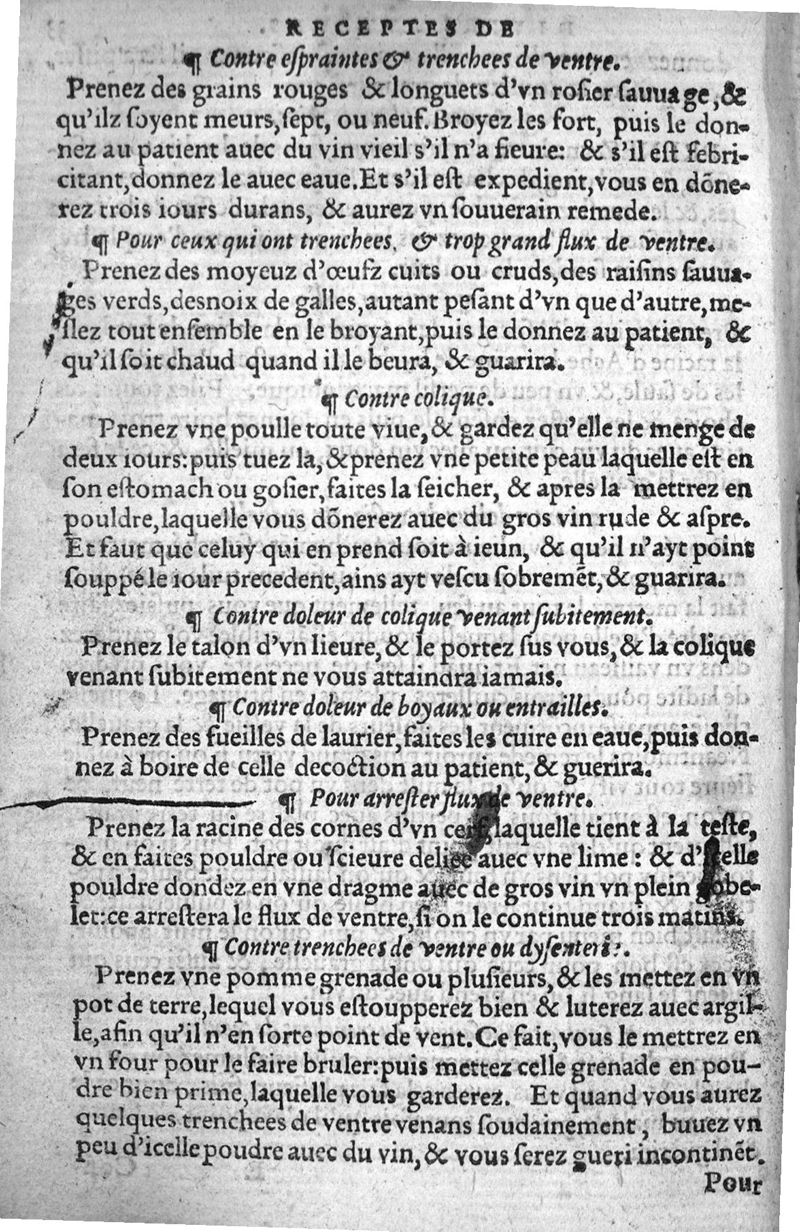 RECEPTES DE
¶ Contre espraintes & trenchees de ventre.
Prenez des grains rouges & longuets d'vn rosier sauuage, &
qu'ilz soyent meurs, sept, ou neuf. Broyez les fort, puis le don-
nez au patient auec du vin vieil s'il n'a fieure: & s'il est febri-
citant, donnez le auec eaue. Et s'il est expedient, vous en dõne-
rez trois iours durans, & aurez vn souuerain remede.
¶ Pour ceux qui ont trenchees, & trop grand flux de ventre.
Prenez des moyeuz d'œufz cuits ou cruds, des raisins sauua-
ges verds, desnoix de galles, autant pesant d'vn que d'autre, me-
slez tout ensemble en le broyant, puis le donnez au patient, &
qu'il soit chaud quand il le beura, & guarira.
¶ Contre colique.
Prenez vne poulle toute viue, & gardez qu'elle ne menge de
deux iours: puis tuez la, & prenez vne petite peau laquelle est en
son estomach ou gosier, faites la seicher, & apres la mettrez en
pouldre, laquelle vous dõnerez auec du gros vin rude & aspre.
Et faut que celuy qui en prend soit à ieun, & qu'il n'ayt point
souppé le iour precedent, ains ayt vescu sobremẽt, & guarira.
¶ Contre doleur de colique venant subitement.
Prenez le talon d'vn lieure, & le portez sus vous, & la colique
venant subitement ne vous attaindra iamais.
¶ Contre doleur de boyaux ou entrailles.
Prenez des fueilles de laurier, faites les cuire en eaue, puis don-
nez à boire de celle decoction au patient, & guerira.
¶ Pour arrester flux de ventre.
Prenez la racine des cornes d'vn cerf, laquelle tient à la teste,
& en faites pouldre ou scieure deliee auec vne lime : & d'icelle
pouldre dondez en vne dragme auec de gros vin vn plein gobe-
let: ce arrestera le flux de ventre, si on le continue trois matins.
¶ Contre trenchees de ventre ou dysenterie.
Prenez vne pomme grenade ou plusieurs, & les mettez en vn
pot de terre, lequel vous estoupperez bien & luterez auec argil-
le, afin qu'il n'en sorte point de vent. Ce fait, vous le mettrez en
vn four pour le faire bruler: puis mettez celle grenade en pou-
dre bien prime, laquelle vous garderez. Et quand vous aurez
quelques trenchees de ventre venans soudainement, buuez vn
peu d'icelle poudre auec du vin, & vous serez gueri incontinẽt.
Pour